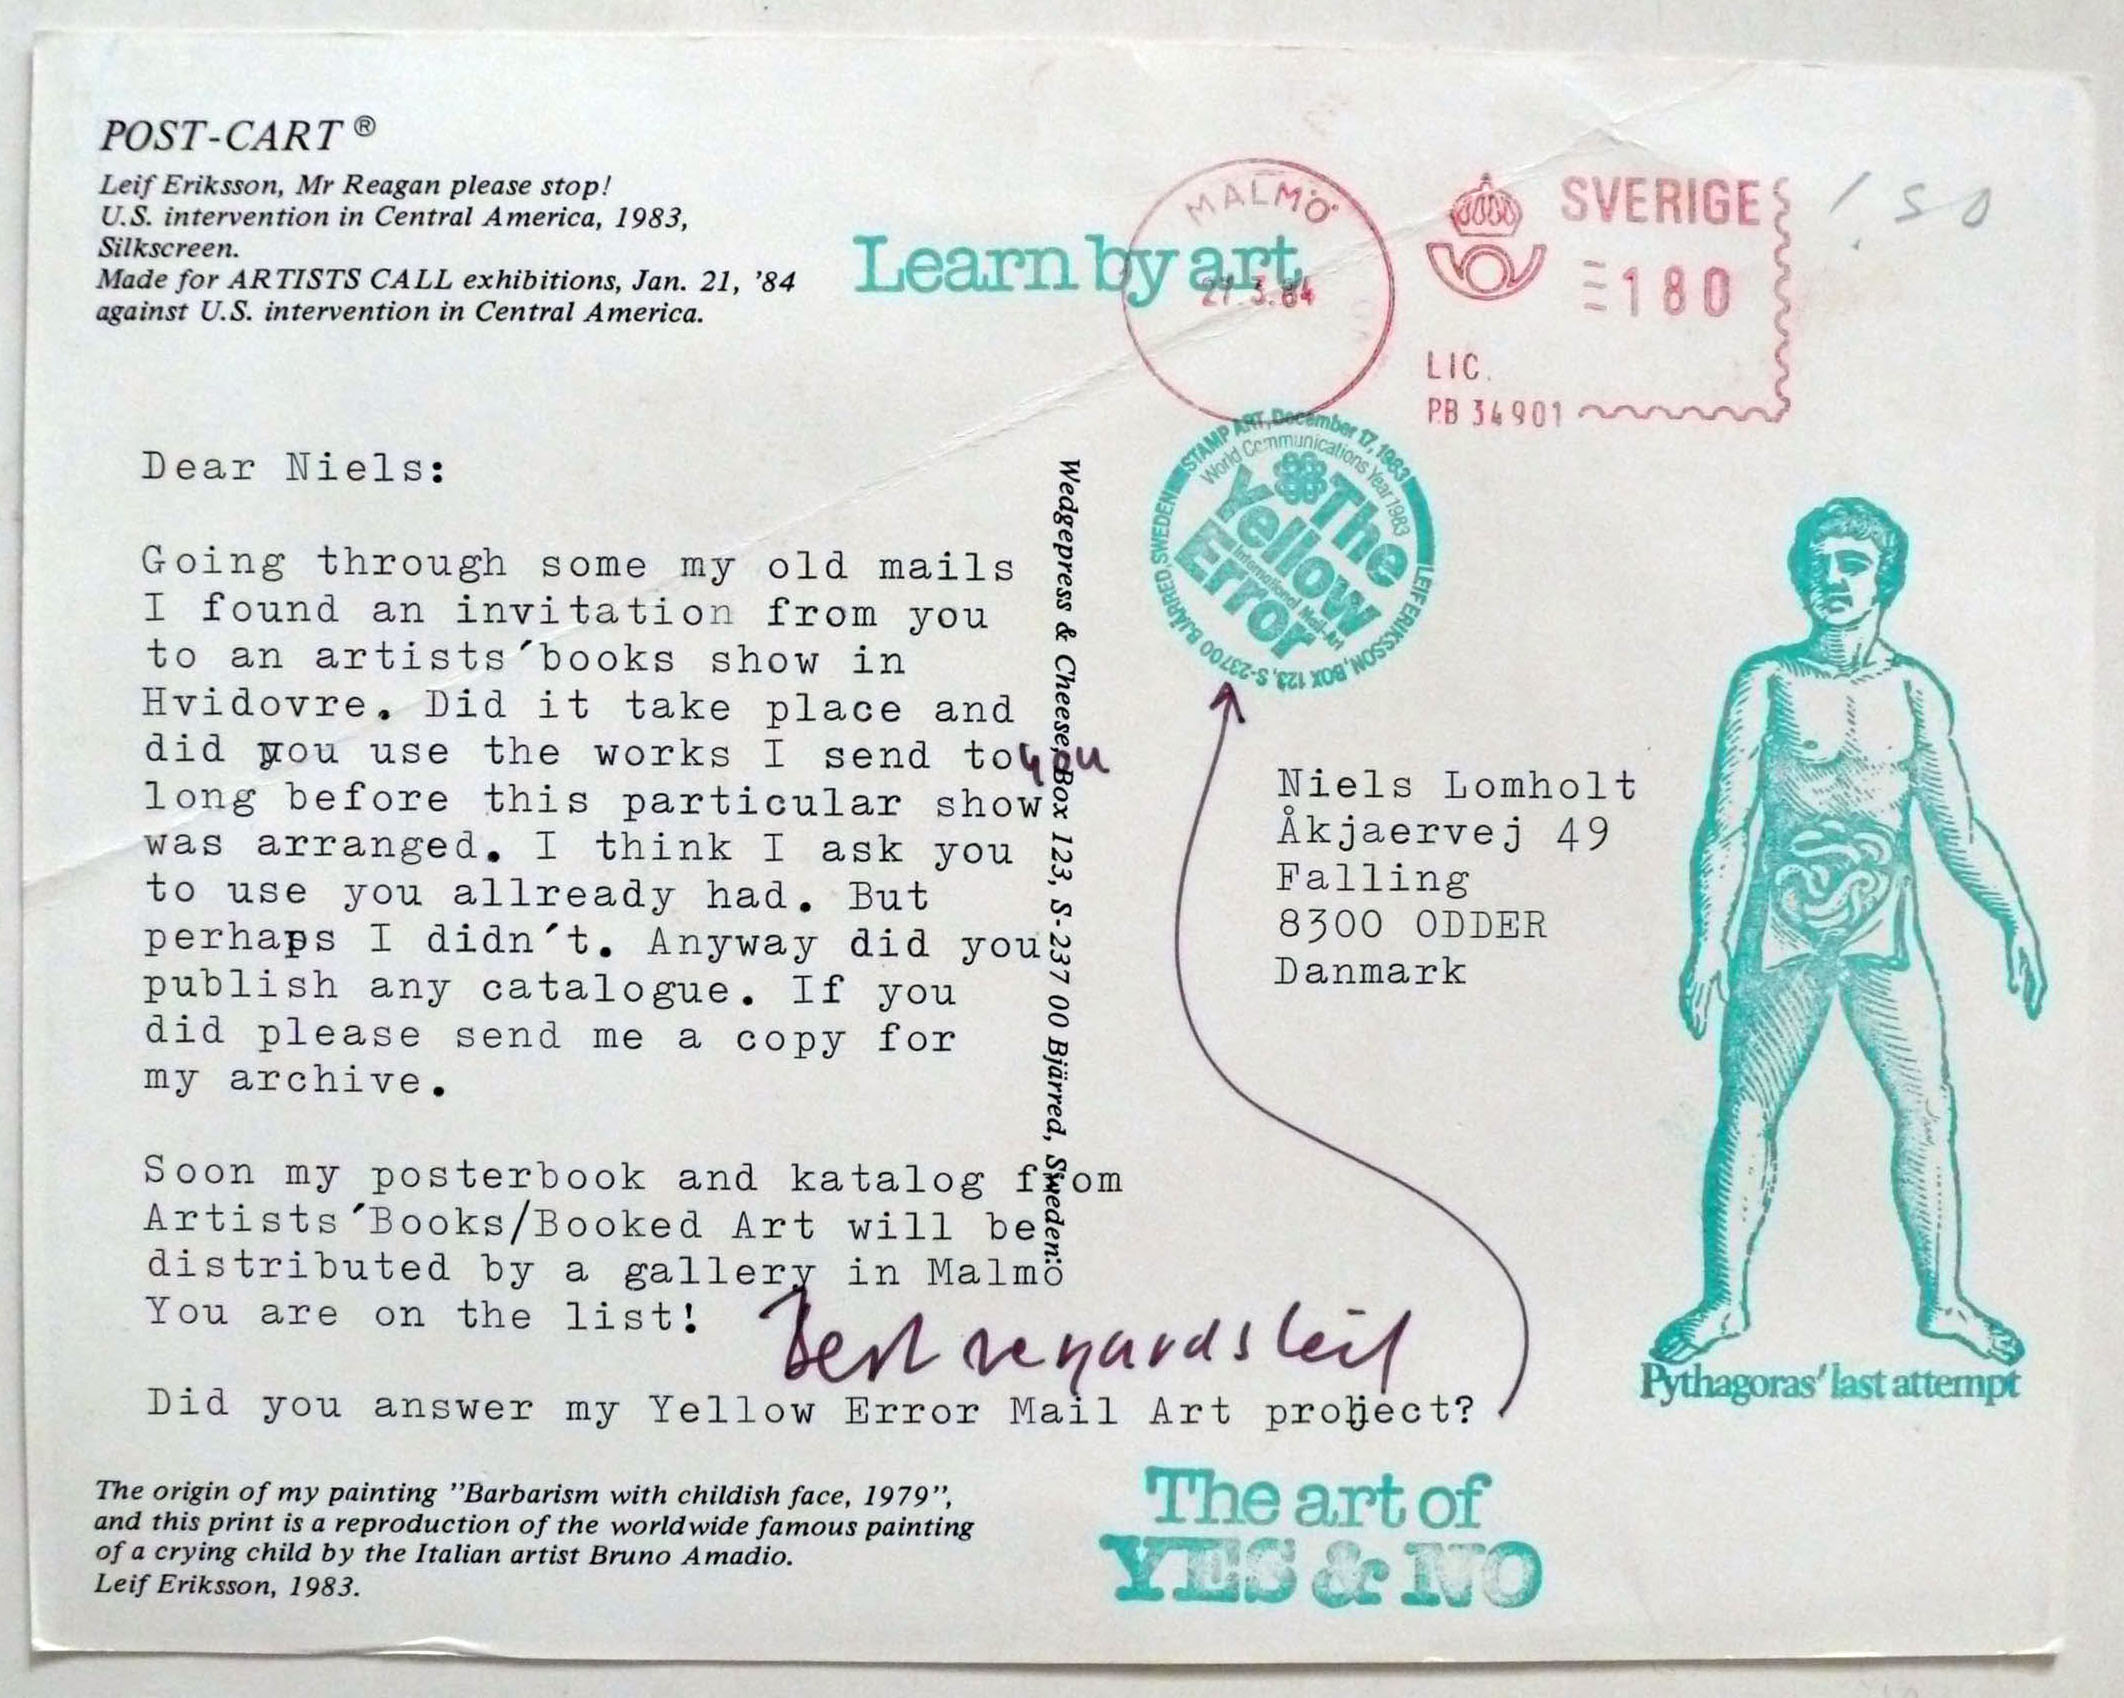 POST-CART ®
Leif Eriksson, Mr Reagan please stop!
U.S. intervention in Central America, 1983,
Silkscreen.
Made for ARTISTS CALL exhibitions, Jan. 21, '84
against U.S. intervention in Central America.
Learn by art
MALMÖ
3.84
SVERIGE
180
LIC.
PB 34901
STAMP ART, December 17, 1983
World Communications Year 1983
The
Yellow
International Mail-Art
Error
LEIF ERIKSSON, BOX 123, S-23700 BJÄRRED SWEDEN
Dear Niels:
Going through some my old mails
I found an invitation from you
to an artists´books show in
Hvidovre. Did it take place and
did you use the works I send to you
long before this particular show
was arranged. I think I ask you
to use you allready had. But
perhaps I didn´t. Anyway did you
publish any catalogue. If you
did please send me a copy for
my archive.
Soon my posterbook and katalog from
Artists´Books/Booked Art will be
distributed by a gallery in Malmö
You are on the list!
Best regards Leif
Did you answer my Yellow Error Mail Art project?
Wedgepress & Cheese, Box 123, S-237 00 Bjärred, Sweden.
Niels Lomholt
Åkjaervej 49
Falling
8300 ODDER
Danmark
Pythagoras' last attempt
The origin of my painting ”Barbarism with childish face, 1979”,
and this print is a reproduction of the worldwide famous painting
of a crying child by the Italian artist Bruno Amadio.
Leif Eriksson, 1983.
The art of
YES & NO